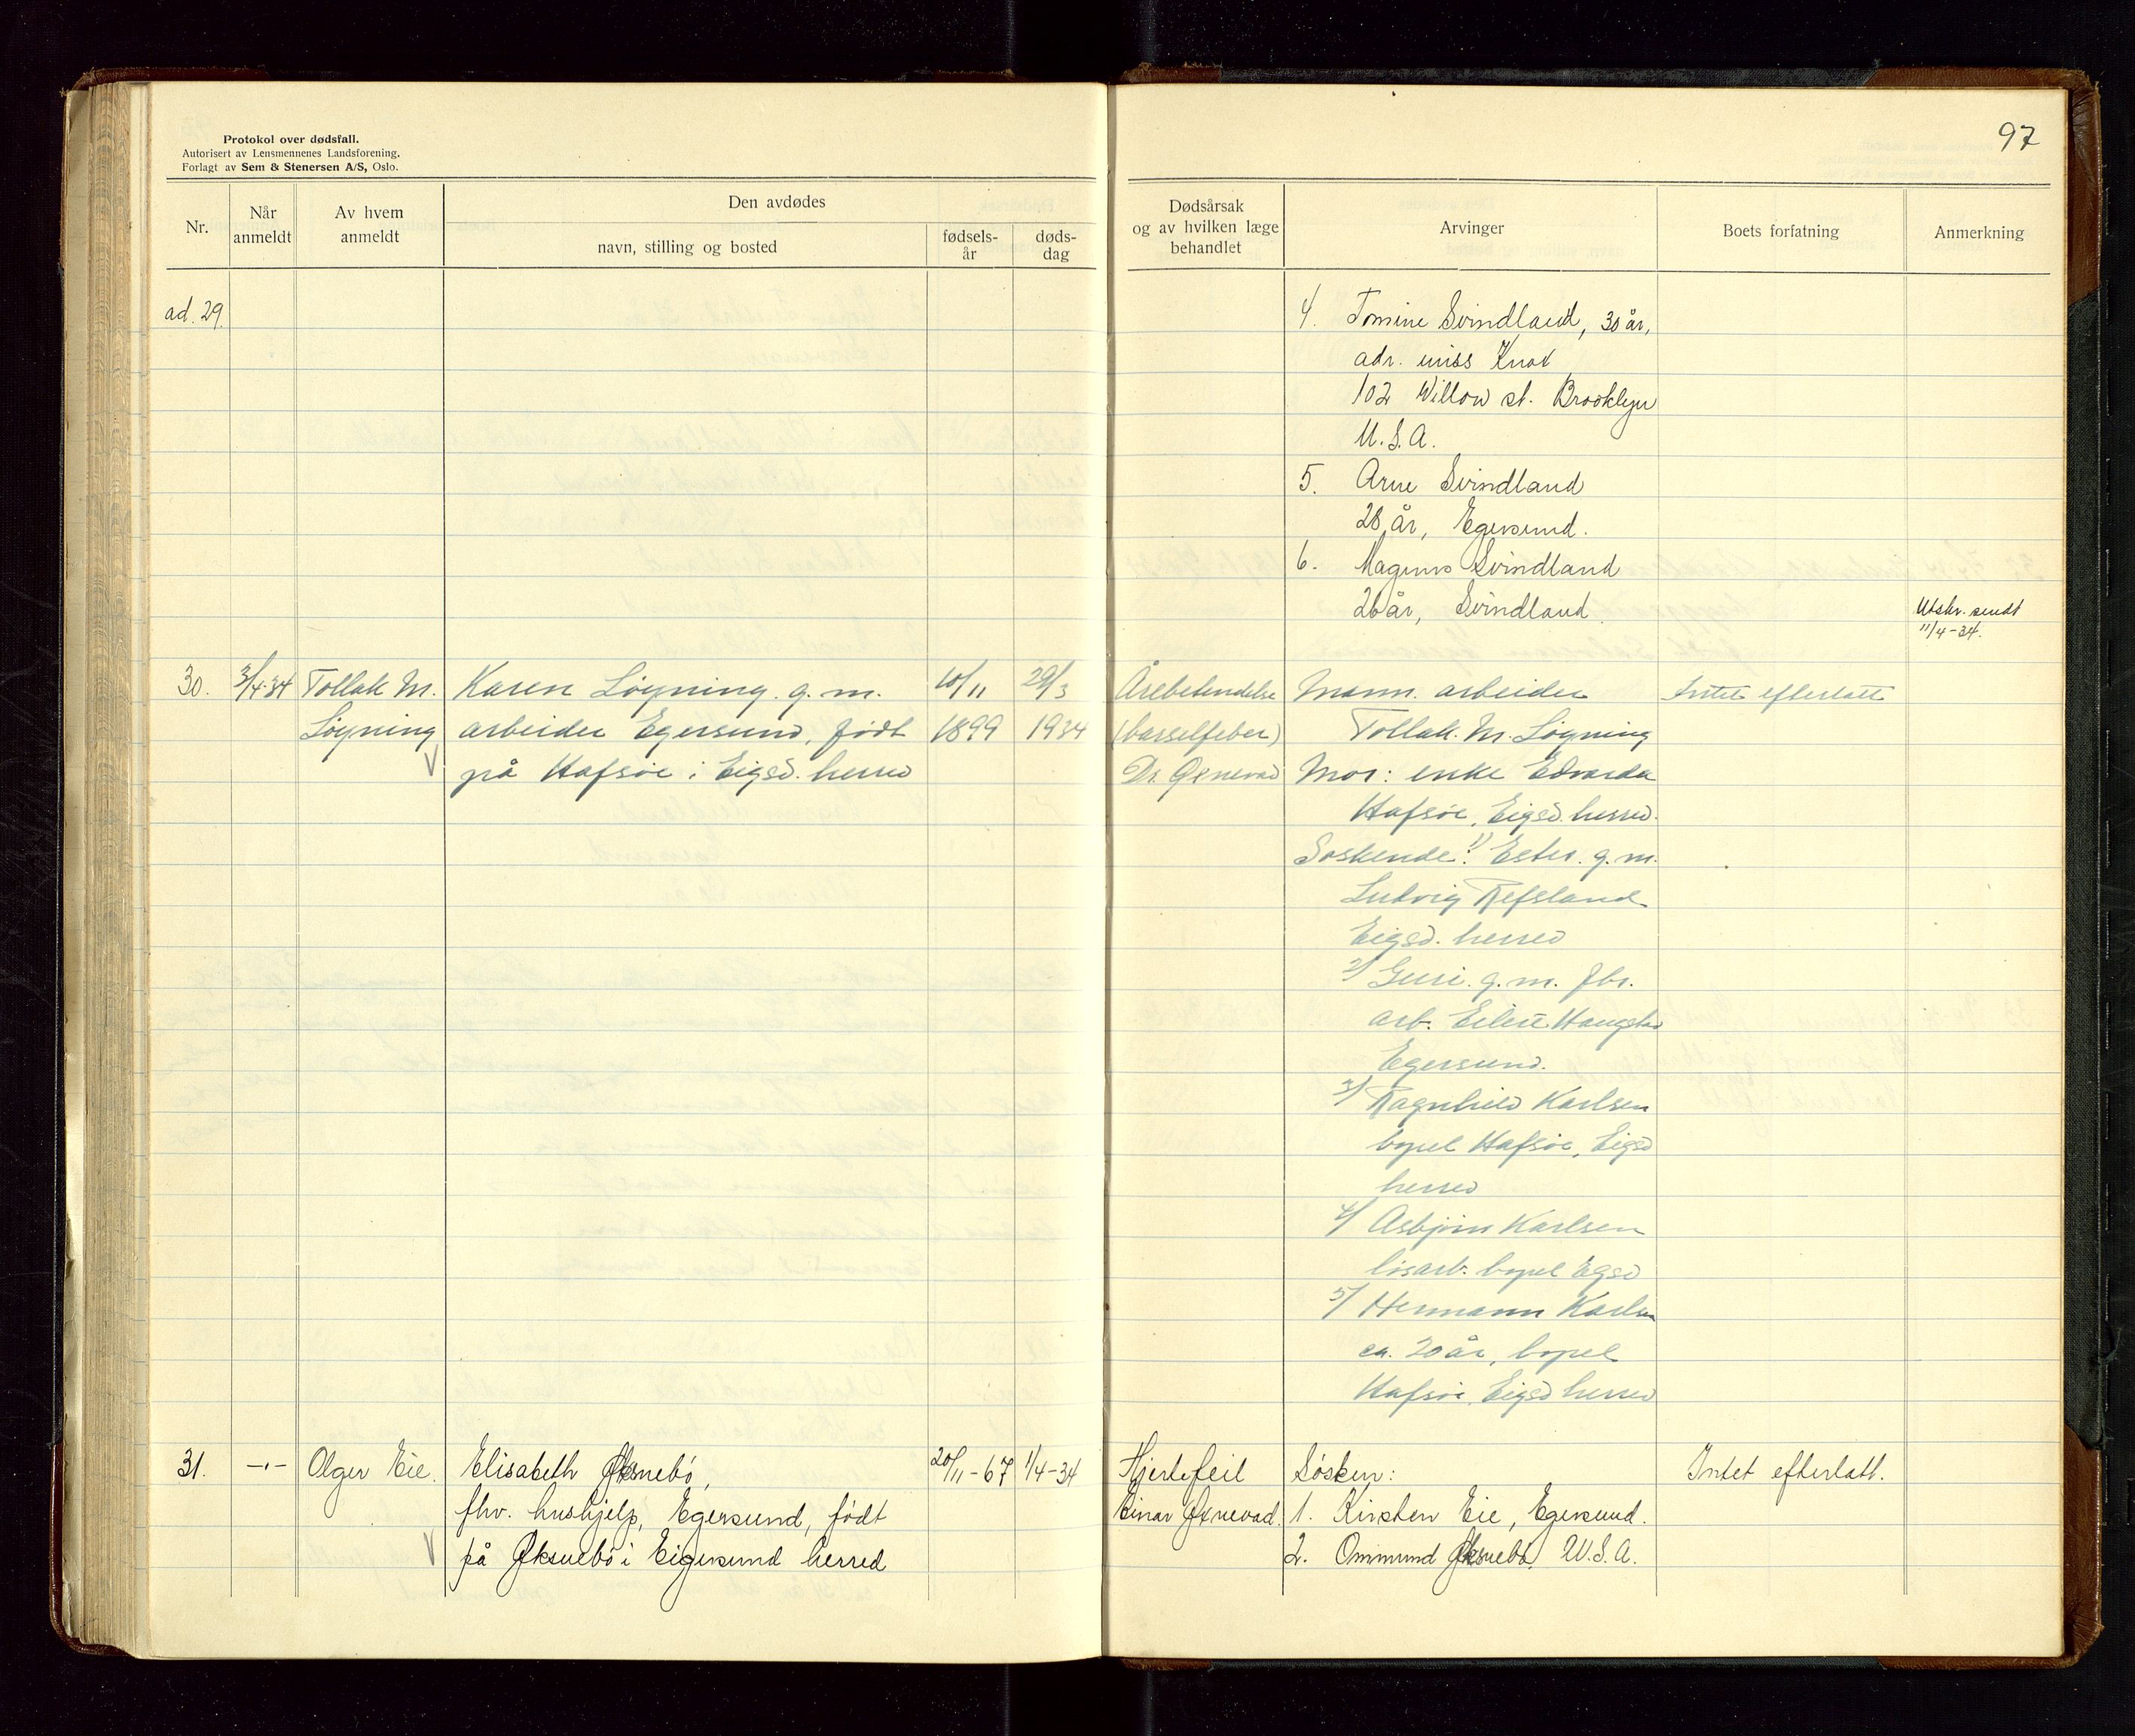 Protokol over dødsfall.
Autorisert av Lensmennenes Landsforening.
Forlagt av Sem & Stenersen A/S, Oslo.
97
Nr.
Når anmeldt
Av hvem anmeldt
Den avdødes
navn, stilling og bosted
fødsels-år
døds-dag
Dødsårsak og av hvilken læge behandlet
Arvinger
Boets forfatning
Anmerkning
ad. 29.
4. Tomine Svindland, 30 år,
adr. miss Knox
102 Willow st. Brooklyn
U.S.A.
5. Arne Svindland
28 år, Egersund.
6. Magnus Svindland
26 år, Svindland.
Utskr. sendt
11/4-34.
30. 3/4-34 Tollak M. Karen Løyning. g. m. 10/11 29/3 Mann. arbeider Intet efterlatt
Løyning arbeider Egersund, født 1899 1934 (barselfeber) Tollak. M. Løyning
på Hafsøe i Eigsd. herred Dr. Øxnevad Mor: enke Edvarda
Hafsøe, Eigsd. herred.
Søskende: 1) Ester. g. m.
Ludvig Refsland
Eigsd. herred
2/ Guri. g. m. fbr.
arb. Eilert Haugstad
Egersund.
3/ Ragnhild Karlsen
bopel Hafsøe, Eigsd
herred
4/ Asbjørn Karlsen
løsarb. bopel Egsd
5/ Hermann Karlsen
ca. 20 år, bopel
Hafsøe, Eigsd herred
31. -"- Olger Eie. Elisabeth Øksnebø, 20/11-67 1/4-34 Hjertefeil Søsken: Intet efterlatt.
fhv. hushjelp, Egersund, født Einar Øxnevad. 1. Kirsten Eie, Egersund.
på Øksnebø i Eigersund herred 2. Ommund Øksnebø, U.S.A.